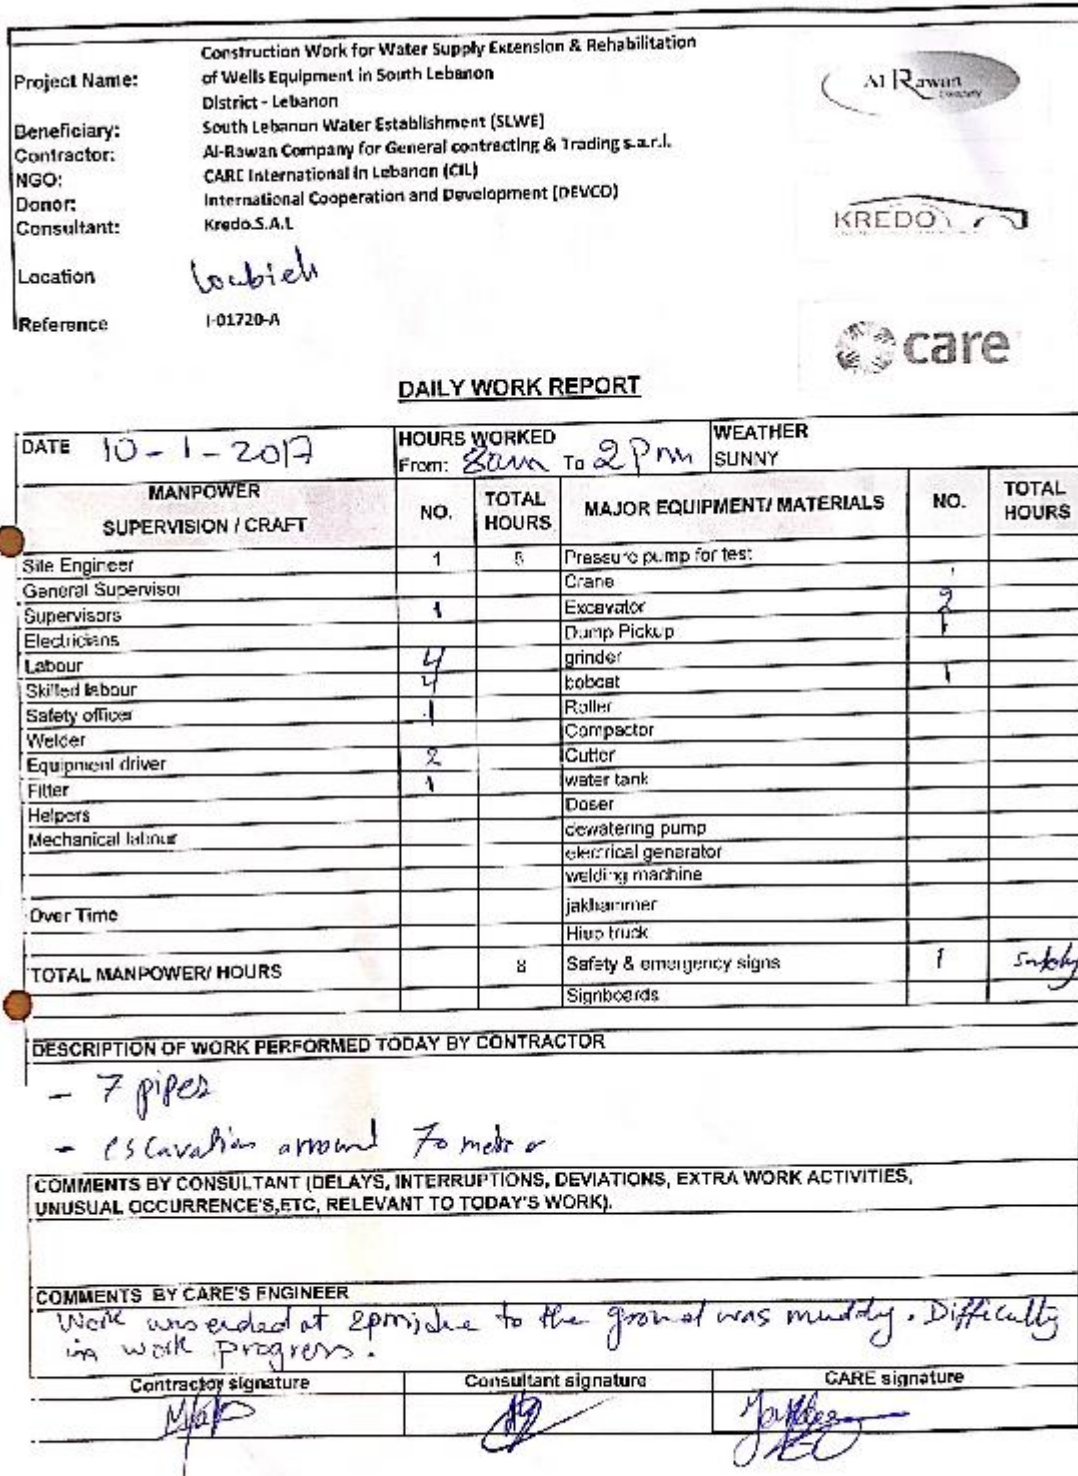 Construction Work for Water Supply Extension & Rehabilitation
Project Name: of Wells Equipment in South Lebanon
District - Lebanon
Beneficiary: South Lebanon Water Establishment (SLWE)
Contractor: Al-Rawan Company for General contracting & Trading s.a.r.l.
NGO: CARE International in Lebanon (CIL)
Donor: International Cooperation and Development (DEVCO)
Consultant: Kredo.S.A.L
Location Loubieh
Reference I-01720-A
Al Rawan
Company
KREDO
care
DAILY WORK REPORT
DATE 10-1-2017 HOURS WORKED From: 8am To 2pm WEATHER SUNNY
MANPOWER SUPERVISION / CRAFT NO. TOTAL HOURS MAJOR EQUIPMENT/ MATERIALS NO. TOTAL HOURS
Site Engineer 1 Pressure pump for test
General Supervisor Crane
Supervisors 1 Excavator 2
Electricians Dump Pickup 1
Labour 4 grinder
Skilled labour 4 bobcat 1
Safety officer 1 Roller
Welder Compactor
Equipment driver 2 Cutter
Fitter 1 water tank
Helpers Doser
Mechanical labour dewatering pump
electrical generator
welding machine
Over Time jakhammer
Hiup truck
TOTAL MANPOWER/ HOURS 8 Safety & emergency signs 1
Signboards
DESCRIPTION OF WORK PERFORMED TODAY BY CONTRACTOR
- 7 pipes
- escavation arround 70 meter
COMMENTS BY CONSULTANT (DELAYS, INTERRUPTIONS, DEVIATIONS, EXTRA WORK ACTIVITIES,
UNUSUAL OCCURRENCE'S,ETC, RELEVANT TO TODAY'S WORK).
COMMENTS BY CARE'S ENGINEER
Work was ended at 2pm, due to the ground was muddy. Difficulty
in work progress.
Contractor signature Consultant signature CARE signature